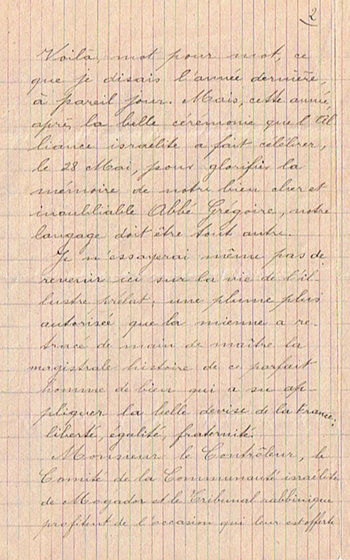 2
Voilà, mot pour mot, ce
que je disais l'année dernière,
à pareil jour. Mais, cette année,
après la belle cérémonie que l'Al
liance israélite a fait célébrer,
le 28 Mai, pour glorifier la
mémoire de notre bien cher et
inoubliable Abbé Grégoire, notre
langage doit être tout autre.
Je n'essayerai même pas de
revenir ici sur la vie de l'il-
lustre prélat; une plume plus
autorisée que la mienne a re-
tracé de main de maître la
magistrale histoire de ce parfait
homme de bien qui a su ap-
pliquer la belle devise de la France:
liberté, égalité, fraternité.
Monsieur le Contrôleur, le
Comité de la Communauté israélite
de Mogador et le Tribunal rabbinique
profitent de l'occasion qui leur est offerte